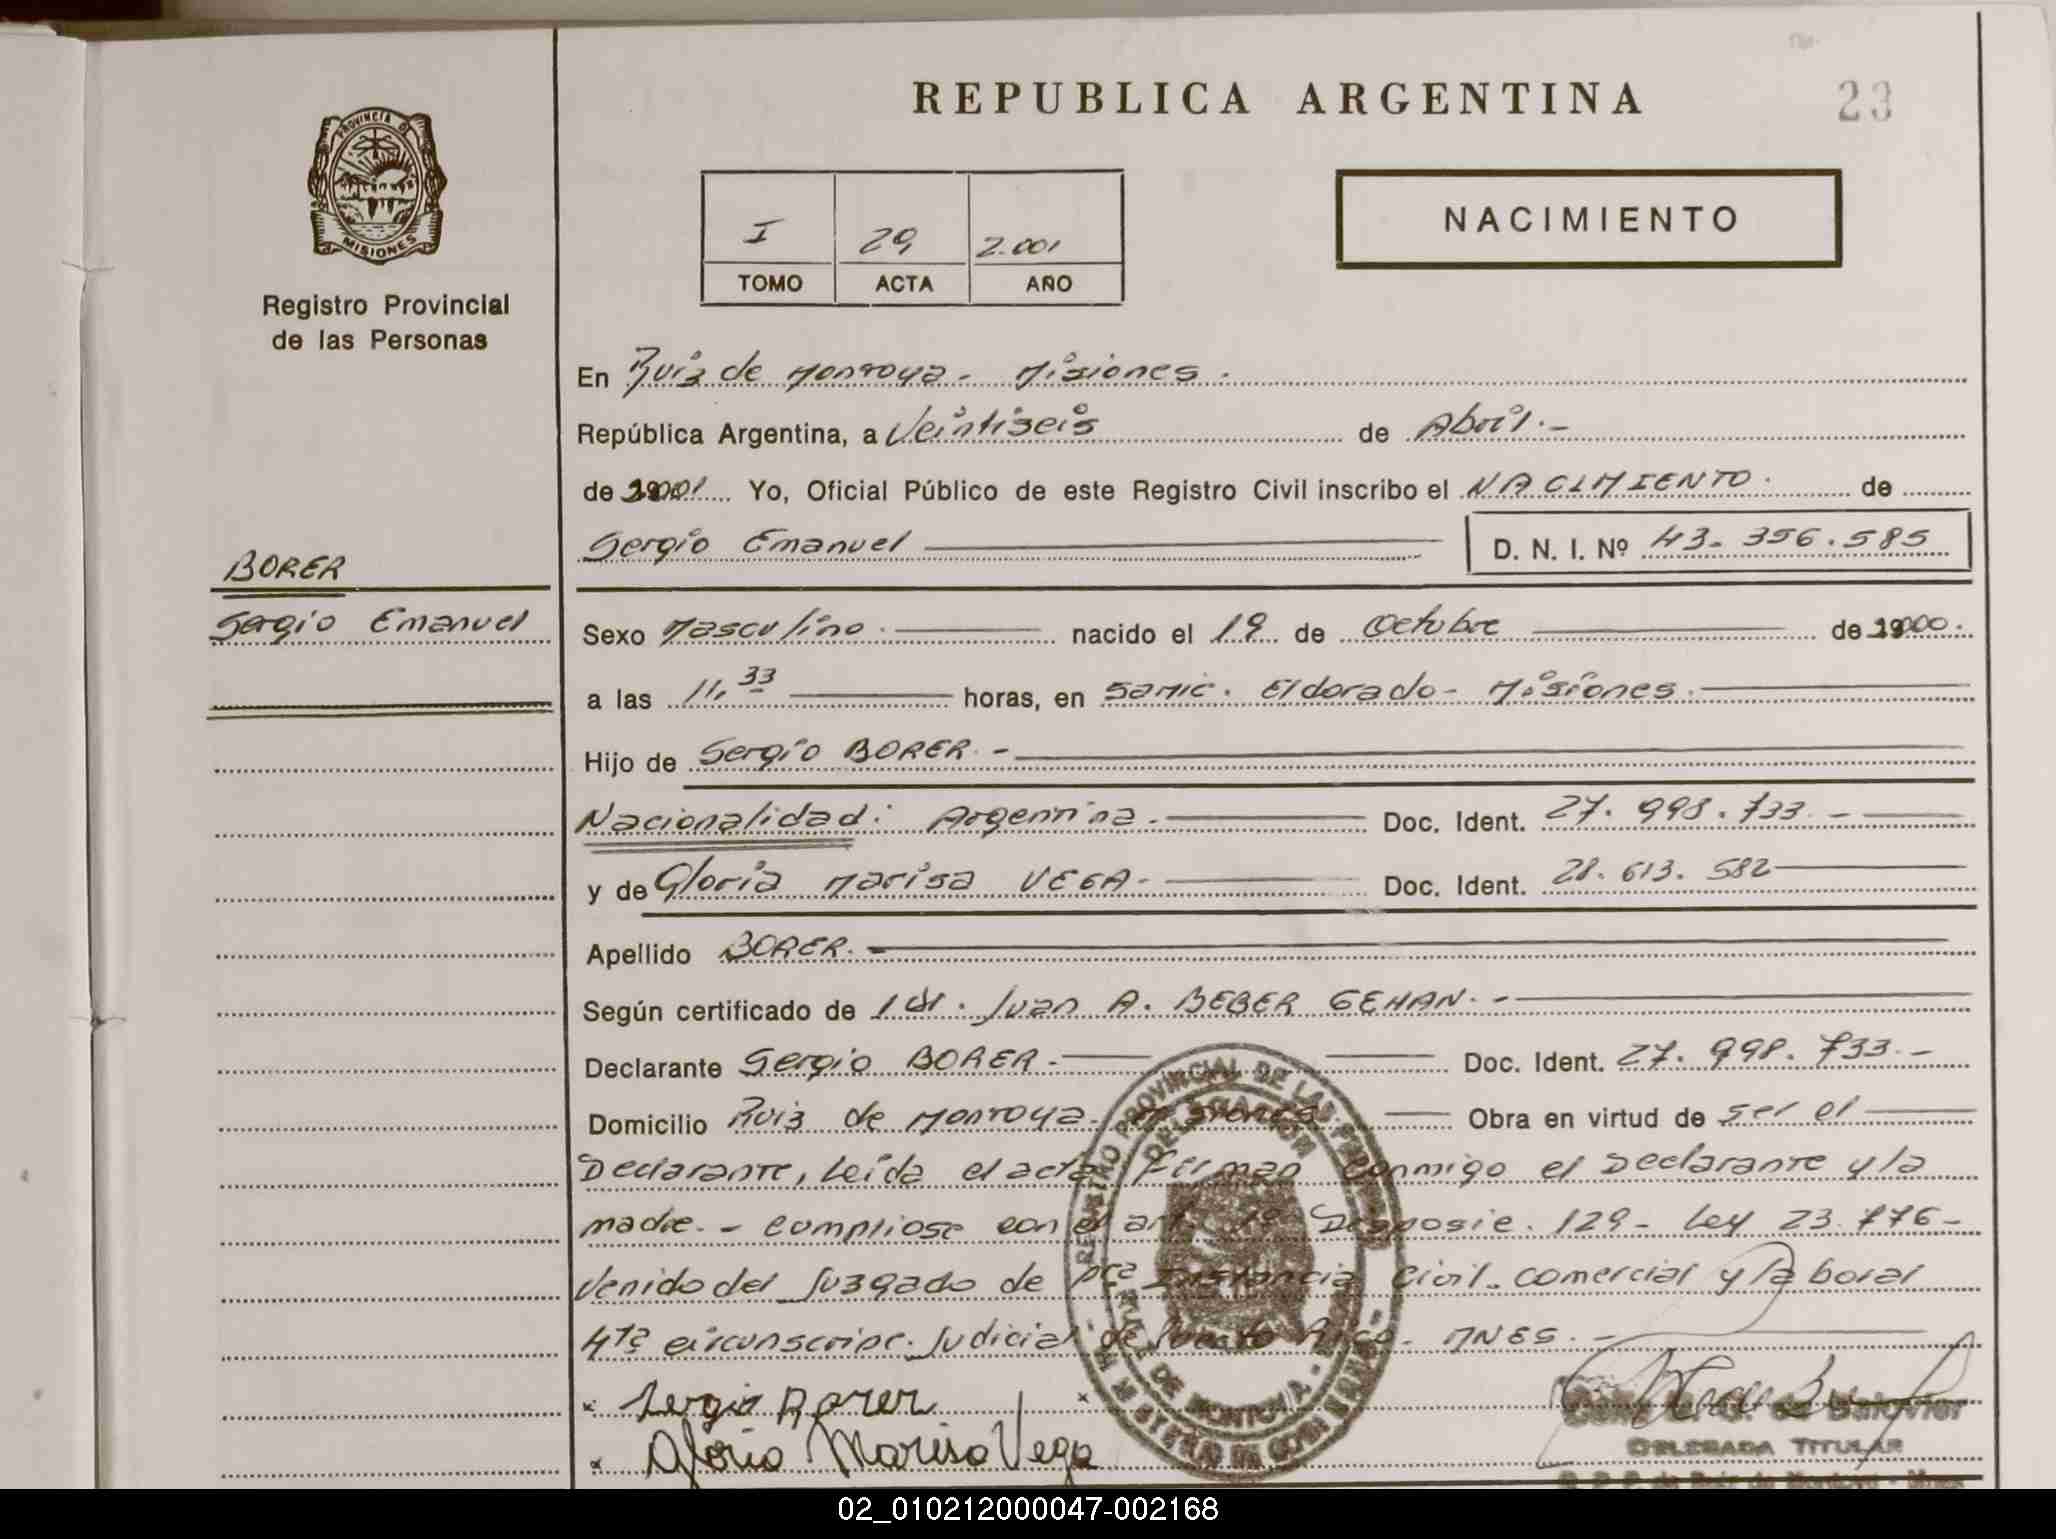 REPUBLICA ARGENTINA
23
PROVINCIA D
MISIONES
Registro Provincial
de las Personas
I 29 2.001
TOMO ACTA AÑO
NACIMIENTO
En Ruiz de Montoya - Misiones.
República Argentina, a Veintiseis de Abril.-
de 2001 Yo, Oficial Público de este Registro Civil inscribo el NACIMIENTO. de
Sergio Emanuel D. N. I. Nº 43.356.585
BORER
Sergio Emanuel
Sexo Masculino. nacido el 19 de Octubre de 2000.
a las 11,33 horas, en Samic. Eldorado - Misiones.
Hijo de Sergio BORER.-
Nacionalidad: Argentina.- Doc. Ident. 27.998.733.-
y de Gloria Marisa VEGA.- Doc. Ident. 28.613.582
Apellido BORER.-
Según certificado de Juan A. BEBER GEHAN.-
Declarante Sergio BORER.- Doc. Ident. 27.998.733.-
Domicilio Ruiz de Montoya - Misiones Obra en virtud de ser el
Declarante, Leída el acta Firman conmigo el Declarante y la
madre.- cumpliose con el art. 1º Disposic. 129 - Ley 23.776-
Venido del Juzgado de pra Instancia Civil. comercial y laboral
4ta circunscripc. Judicial de Puerto Rico - MNES.-
x Sergio Borer x
x Gloria Marisa Vega
REGISTRO PROVINCIAL DE LAS PERSONAS
DELEGACION
DE MONTOYA
DELEGADA TITULAR
R. P. P. de Ruiz de Montoya - Mnes
02_010212000047-002168